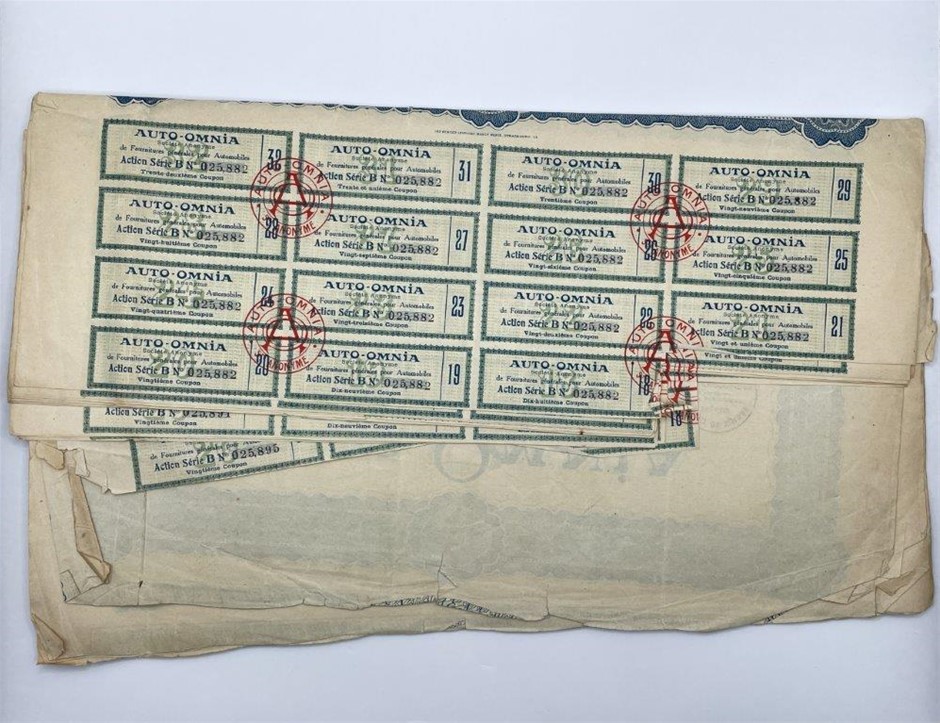 AUTO-OMNIA
Société Anonyme
de Fournitures générales pour Automobiles
Action Série B Nº 025,882
Trente-deuxième Coupon
32
AUTO-OMNIA
Société Anonyme
de Fournitures générales pour Automobiles
Action Série B Nº 025,882
Trente et unième Coupon
31
AUTO-OMNIA
Société Anonyme
de Fournitures générales pour Automobiles
Action Série B Nº 025,882
Trentième Coupon
30
AUTO-OMNIA
Société Anonyme
de Fournitures générales pour Automobiles
Action Série B Nº 025,882
Vingt-neuvième Coupon
29
AUTO-OMNIA
Société Anonyme
de Fournitures générales pour Automobiles
Action Série B Nº 025,882
Vingt-huitième Coupon
28
AUTO-OMNIA
Société Anonyme
de Fournitures générales pour Automobiles
Action Série B Nº 025,882
Vingt-septième Coupon
27
AUTO-OMNIA
Société Anonyme
de Fournitures générales pour Automobiles
Action Série B Nº 025,882
Vingt-sixième Coupon
26
AUTO-OMNIA
Société Anonyme
de Fournitures générales pour Automobiles
Action Série B Nº 025,882
Vingt-cinquième Coupon
25
AUTO-OMNIA
Société Anonyme
de Fournitures générales pour Automobiles
Action Série B Nº 025,882
Vingt-quatrième Coupon
24
AUTO-OMNIA
Société Anonyme
de Fournitures générales pour Automobiles
Action Série B Nº 025,882
Vingt-troisième Coupon
23
AUTO-OMNIA
Société Anonyme
de Fournitures générales pour Automobiles
Action Série B Nº 025,882
Vingt-deuxième Coupon
22
AUTO-OMNIA
Société Anonyme
de Fournitures générales pour Automobiles
Action Série B Nº 025,882
Vingt et unième Coupon
21
AUTO-OMNIA
Société Anonyme
de Fournitures générales pour Automobiles
Action Série B Nº 025,882
Vingtième Coupon
20
AUTO-OMNIA
Société Anonyme
de Fournitures générales pour Automobiles
Action Série B Nº 025,882
Dix-neuvième Coupon
19
AUTO-OMNIA
Société Anonyme
de Fournitures générales pour Automobiles
Action Série B Nº 025,882
Dix-huitième Coupon
18
AUTO-OMNIA
A
ANONYME
AUTO-OMNIA
A
ANONYME
AUTO-OMNIA
A
ANONYME
AUTO-OMNI
A
Vingt et unième Coupon
Action Série B Nº 025,891
Vingtième Coupon
Dix-neuvième Coupon
18
de Fournitures générales pour Automobiles
Action Série B Nº 025,895
Vingtième Coupon